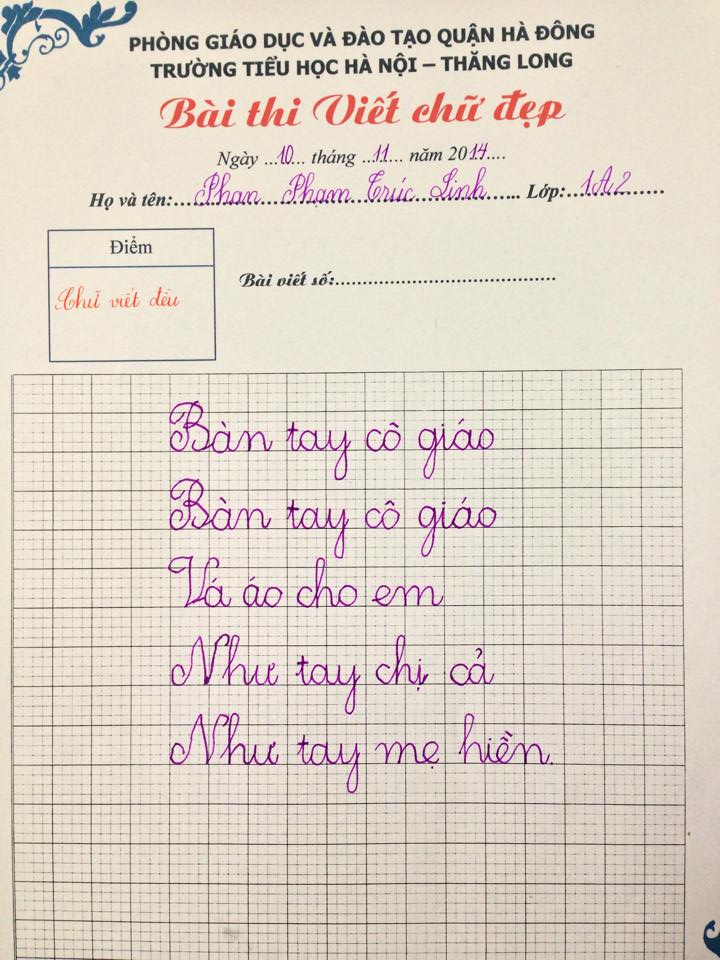 PHÒNG GIÁO DỤC VÀ ĐÀO TẠO QUẬN HÀ ĐÔNG
TRƯỜNG TIỂU HỌC HÀ NỘI – THĂNG LONG
Bài thi Viết chữ đẹp
Ngày ...10... tháng ...11... năm 2014....
Họ và tên:...Phan Phạm Trúc Linh...... Lớp:...1A2......
Điểm
Chữ viết đều
Bài viết số:........................................
Bàn tay cô giáo
Bàn tay cô giáo
Vá áo cho em
Như tay chị cả
Như tay mẹ hiền.